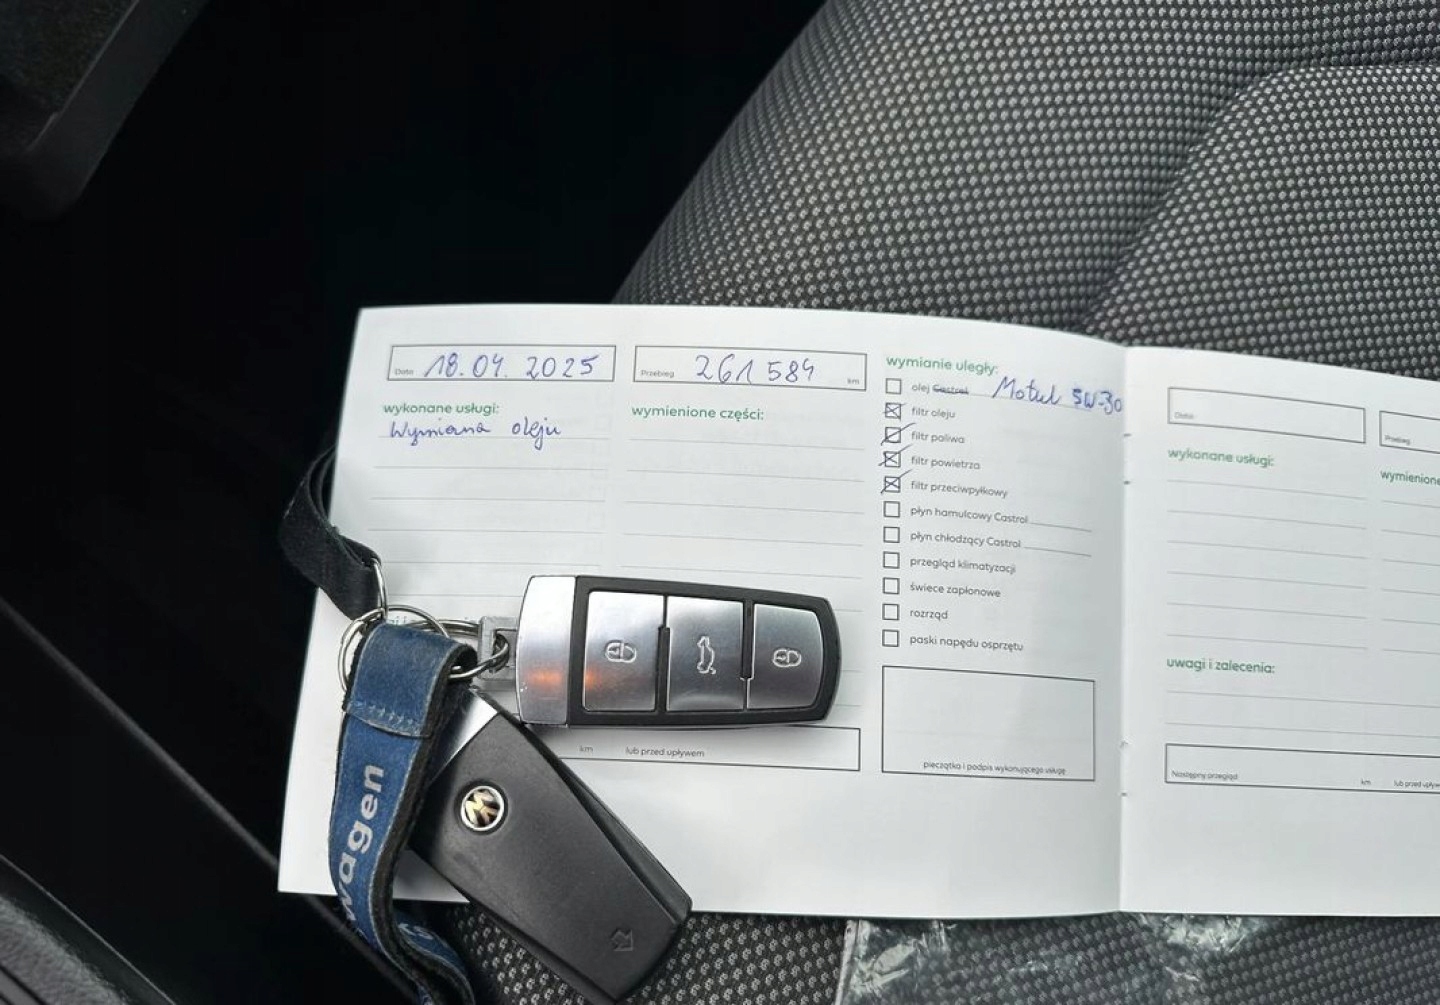 Data 18.04.2025
Przebieg 261 584 km
wykonane usługi:
Wymiana oleju
wymienione części:
wymianie uległy:
olej Castrol Motul 5W-30
filtr oleju
filtr paliwa
filtr powietrza
filtr przeciwpyłkowy
płyn hamulcowy Castrol
płyn chłodzący Castrol
przegląd klimatyzacji
świece zapłonowe
rozrząd
paski napędu osprzętu
km lub przed upływem
pieczątka i podpis wykonującego usługę
Data
Przebieg
wykonane usługi:
wymienione
uwagi i zalecenia:
Następny przegląd km lub przed upływ
wagen